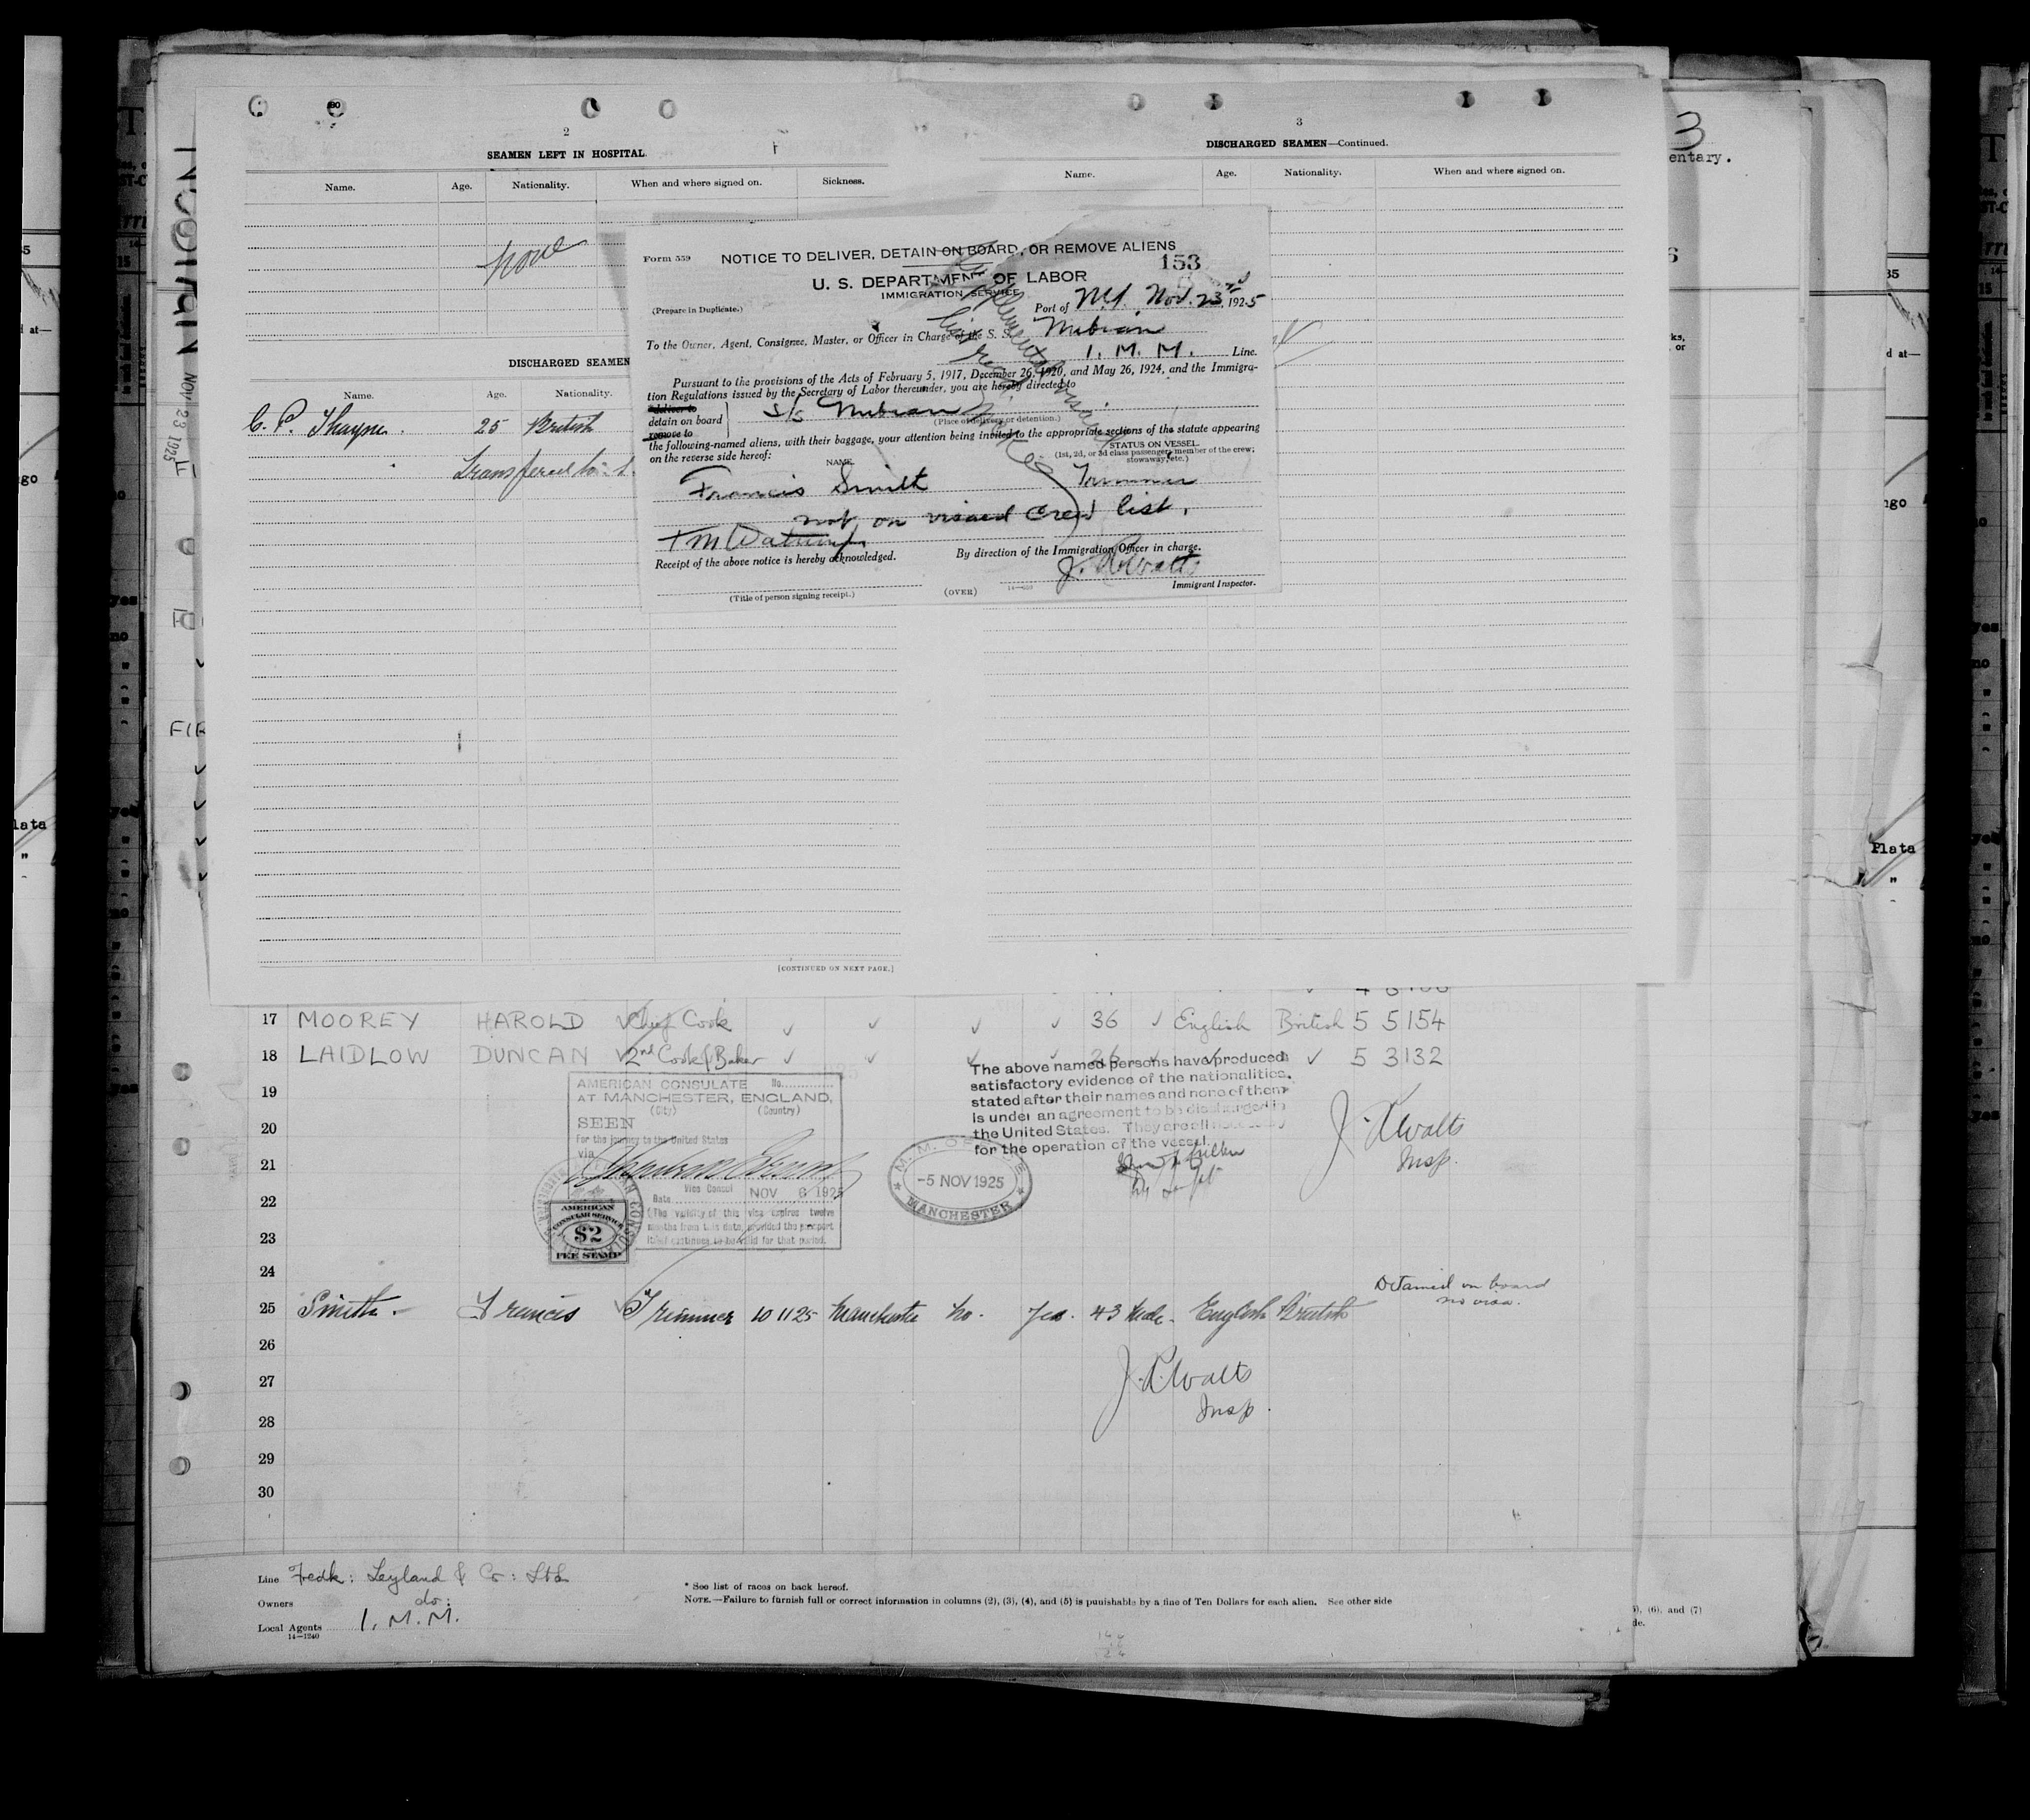 2
SEAMEN LEFT IN HOSPITAL.
Name. Age. Nationality. When and where signed on. Sickness.
None
DISCHARGED SEAMEN
Name. Age. Nationality.
C. P. Thayne. 25 British
Transferred to
[CONTINUED ON NEXT PAGE.]
3
DISCHARGED SEAMEN—Continued.
Name. Age. Nationality. When and where signed on.
Form 559 NOTICE TO DELIVER, DETAIN ON BOARD, OR REMOVE ALIENS
153
U. S. DEPARTMENT OF LABOR
IMMIGRATION SERVICE
(Prepare in Duplicate.)
Port of N.Y. Nov. 23rd, 1925
To the Owner, Agent, Consignee, Master, or Officer in Charge of the S. S. Nubian
I. M. M. Line.
Pursuant to the provisions of the Acts of February 5, 1917, December 26, 1920, and May 26, 1924, and the Immigra-
tion Regulations issued by the Secretary of Labor thereunder, you are hereby directed to
deliver to
detain on board S/S Nubian
remove to
(Place of delivery or detention.)
the following-named aliens, with their baggage, your attention being invited to the appropriate sections of the statute appearing
on the reverse side hereof:
NAME.
STATUS ON VESSEL
(1st, 2d, or 3d class passenger, member of the crew; stowaway, etc.)
Francis Smith Trimmer
not on visaed crew list.
Receipt of the above notice is hereby acknowledged.
By direction of the Immigration Officer in charge.
J. R. Watts
Immigrant Inspector.
(Title of person signing receipt.)
(OVER)
14—559
NOV 23 1925
FIR
entary.
3
17 MOOREY HAROLD Chief Cook 36 English British 5 5 154
18 LAIDLOW DUNCAN 2nd Cook & Baker 26 5 3 132
The above named persons have produced
satisfactory evidence of the nationalities
stated after their names and none of them
is under an agreement to be discharged in
the United States. They are all necessary
for the operation of the vessel.
AMERICAN CONSULATE No.
AT MANCHESTER, ENGLAND,
(City) (Country)
SEEN
For the journey to the United States
via
Vice Consul
Date NOV 6 1925
(The validity of this visa expires twelve
months from this date, provided the passport
itself continues to be valid for that period.
AMERICAN
CONSULAR SERVICE
$2
FEE STAMP
-5 NOV 1925
MANCHESTER
J. R. Watts
Insp.
19
20
21
22
23
24
25 Smith. Francis Trimmer 10 11 25 Manchester No. Yes. 43 Male. English British
Detained on board
no visa.
26
27
28
29
30
J. R. Watts
Insp.
Line Fredk: Leyland & Co: Ltd
Owners do:
Local Agents I. M. M.
14—1240
* See list of races on back hereof.
NOTE.—Failure to furnish full or correct information in columns (2), (3), (4), and (5) is punishable by a fine of Ten Dollars for each alien. See other side
(6), and (7)
Plata
"